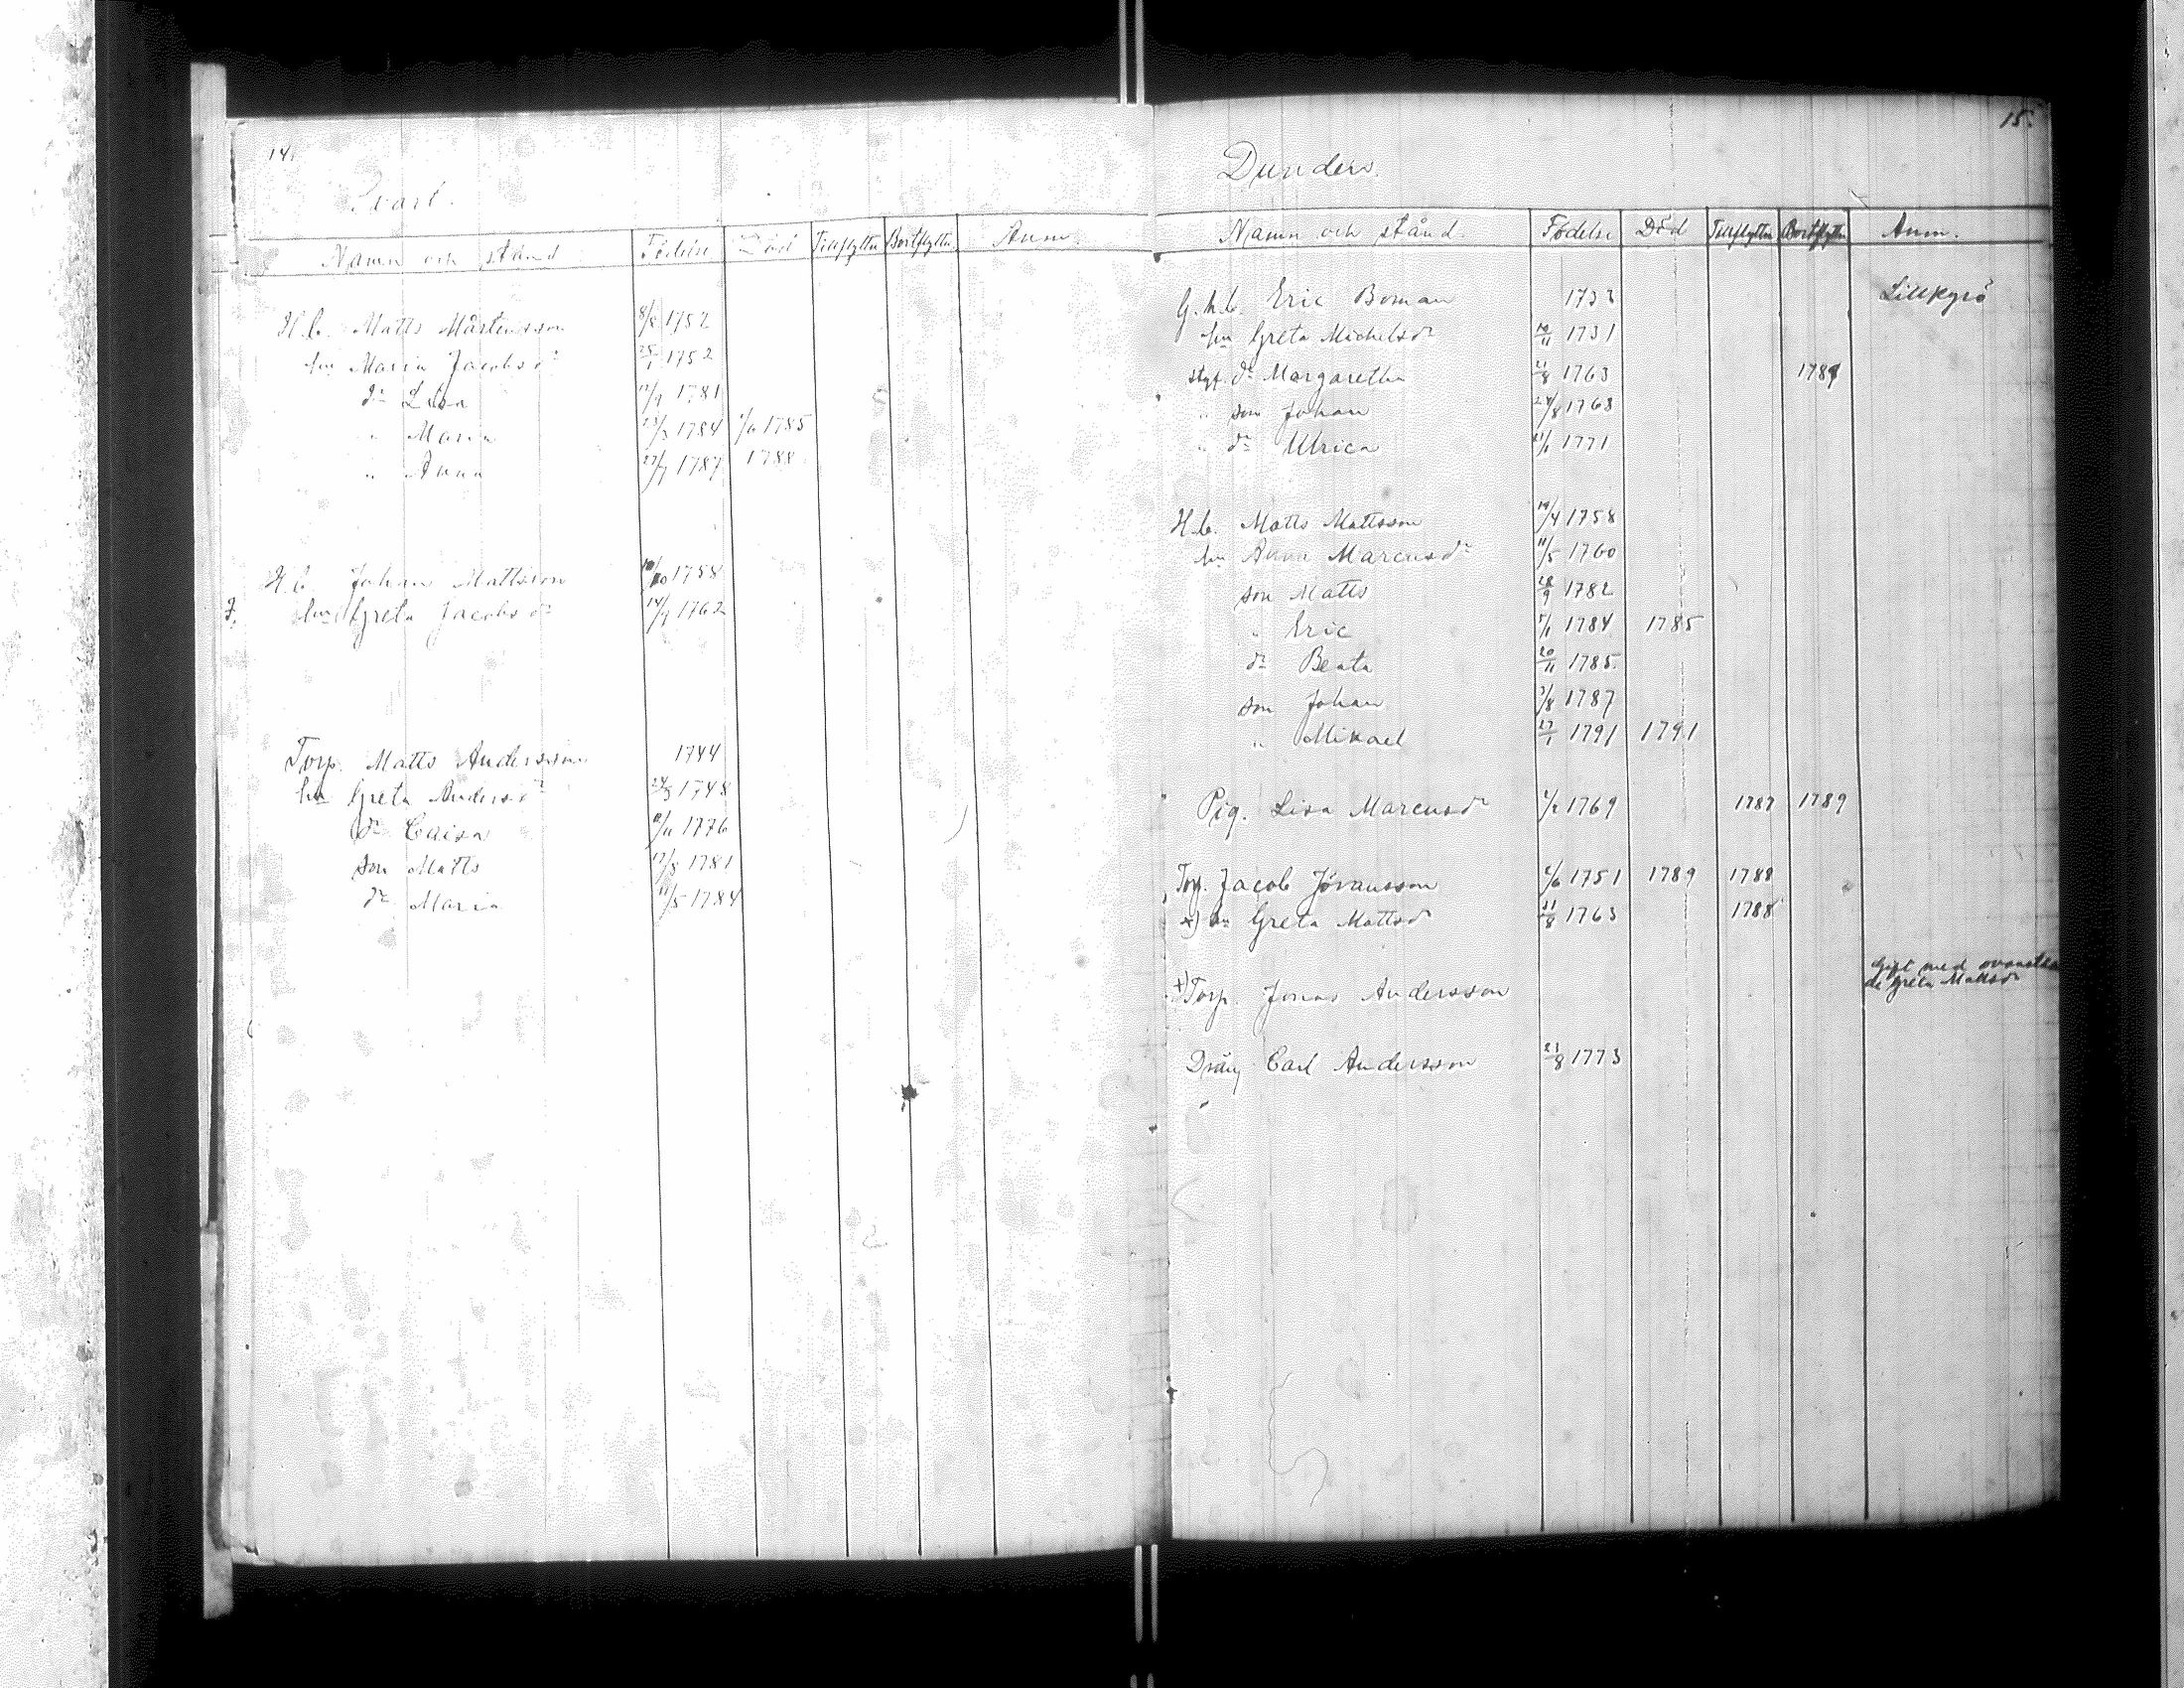 14.
Svarl.
Namn och stånd Födelse Död Tillflyttn Bortflyttn. Anm.
H.b. Matts Mårtensson 8/8 1752
hu Maria Jacobsdr 25/1 1752
dr Lisa 12/9 1781
" Maria 23/3 1784 1785
" Anna 27/7 1787 1788
H.b. Johan Mattsson 10/10 1758
hu Greta Jacobsdr 14/9 1762
Torp. Matts Andersson 1744
hu Greta Andersdr 24/3 1748
dr Caisa 1776
son Matts 17/8 1781
dr Maria 11/5 1784
15.
Dunders.
Namn och stånd. Födelse Död Tillflyttn Bortflyttn Anm.
G.h.b. Eric Boman 1733 Lillkyrö
hu Greta Michelsdr 10/11 1731
styf. dr Margaretha 21/8 1763 1789
" son Johan 24/8 1768
" dr Ulrica 21/1 1771
H.b. Matts Mattsson 14/4 1758
hu Anna Marcusdr 11/5 1760
son Matts 28/9 1782
" Eric 5/1 1784 1785
dr Beata 20/11 1785.
son Johan 3/8 1787
" Mikael 27/1 1791 1791
Pig. Lisa Marcusdr 1/2 1769 1787 1789
Torp. Jacob Jöransson 6/6 1751 1789 1788
x) hu Greta Mattsdr 21/8 1763 1788
gift med ovanståen
de Greta Mattsdr
x) Torp. Jonas Andersson
Dräng Carl Andersson 21/8 1773